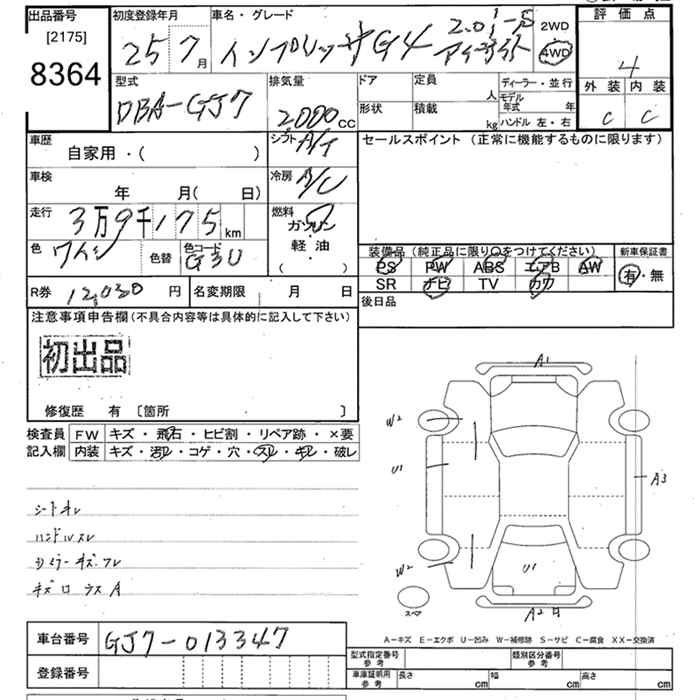 出品番号 初度登録年月 車名・グレード 評価点
[2175] 25 7月 インプレッサG4 2.0i-S アイサイト 2WD 4WD 4
8364 型式 排気量 ドア 定員 人 ディーラー・並行 外装 内装
DBA-GJ7 2000CC 形状 積載 kg モデル年式 年 ハンドル 左・右 C C
車歴 自家用・( ) シフト A/T セールスポイント (正常に機能するものに限ります)
車検 年 月( 日) 冷房 A/C
走行 3万9千175km 燃料 ガソリン 軽油 ( )
色 ワイン 色替 色コード G3U 装備品 (純正品に限り○をつけてください) 新車保証書
PS PW ABS エアB AW 有・無
R券 12,030円 名変期限 月 日 SR ナビ TV カワ
後日品
注意事項申告欄(不具合内容等は具体的に記入して下さい)
初出品
修復歴 有 〔箇所 〕
検査員 FW キズ・飛石・ヒビ割・リペア跡・×要
記入欄 内装 キズ・汚レ・コゲ・穴・スレ・キレ・破レ
A1
W2
U1 A3
シートキレ
ハンドルスレ
W2 U1
スペア A2
A-キズ E-エクボ U-凹み W-補修跡 S-サビ C-腐食 XX-交換済
車台番号 GJ7-013347
型式指定番号 参考 類別区分番号 参考
登録番号 車庫証明用 参考 長さ cm 幅 cm 高さ cm